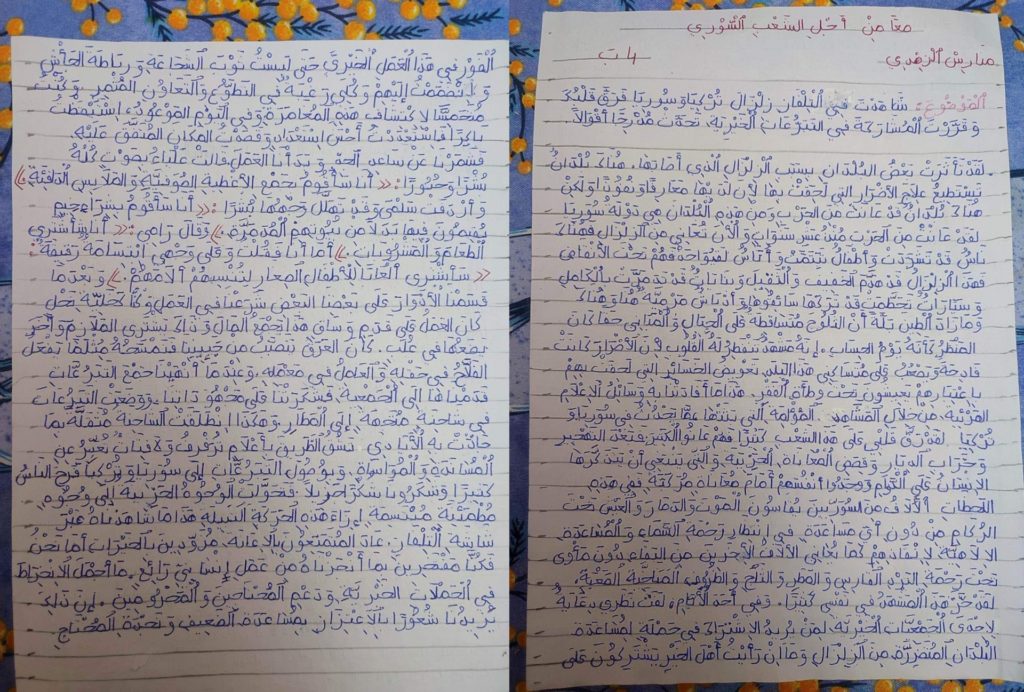 معًا مِنْ أَجْلِ الشَّعْبِ السُّورِي
4 ب
المَوْضُوعُ: شَاهَدْتَ فِي التِّلْفَازِ زِلْزَالَ تُرْكِيَا وَ سُورِيَا فَرَقَّ قَلْبُكَ
وَ قَرَّرْتَ الْمُشَارَكَةَ فِي التَّبَرُّعَاتِ الْخَيْرِيَّةِ. تَحَدَّثْ مُدْرِجًا أَقْوَالًا.
لَقَدْ تَأَثَّرَتْ بَعْضُ الْبُلْدَانِ بِسَبَبِ الزِّلْزَالِ الَّذِي أَصَابَهَا. هُنَاكَ بُلْدَانٌ
تَسْتَطِيعُ عِلَاجَ الْأَضْرَارِ الَّتِي لَحِقَتْ بِهَا لِأَنَّ لَدَيْهَا وَ نُقُودًا وَ لَكِنْ
هُنَاكَ بُلْدَانٌ قَدْ عَانَتْ مِنَ الْحَرْبِ وَ مِنْ هَذِهِ الْبُلْدَانِ هِيَ دَوْلَةُ سُورِيَا
لَقَدْ عَانَتْ مِنَ الْحَرْبِ مُنْذُ عَشْرِ سَنَوَاتٍ وَ الْآنَ تُعَانِي مِنَ الزِّلْزَالِ فَهُنَاكَ
نَاسٌ قَدْ تَشَرَّدَتْ وَ أَطْفَالٌ تَيَتَّمَتْ وَ أُنَاسٌ فَهُمْ تَحْتَ الْأَنْقَاضِ
فَهَذَا الزِّلْزَالُ قَدْ هَدَمَ الْخَفِيفَ وَ الثَّقِيلَ وَ بِنَايَاتٌ قَدْ دُمِّرَتْ بِالْكَامِلِ
وَ سَيَّارَاتٌ تَحَطَّمَتْ قَدْ تَرَكَهَا سَائِقُوهَا وَ أُنَاسٌ مَرْمِيَّةٌ هُنَا وَ هُنَاكَ
وَ مَا زَادَ الطِّينَ بَلَّةً أَنَّ الثُّلُوجَ مُتَسَاقِطَةٌ عَلَى الْجِبَالِ وَ الْمَبَانِي حَقًّا كَانَ
الْمَنْظَرُ كَأَنَّهُ يَوْمُ الْحِسَابِ. إِنَّهُ مَشْهَدٌ تَنْفَطِرُ لَهُ الْقُلُوبُ لِأَنَّ الْأَضْرَارَ كَانَتْ
فَادِحَةً وَ يَصْعُبُ عَلَى مُتَسَاكِنِي هَذَا الْبَلَدِ تَعْوِيضُ الْخَسَائِرِ الَّتِي لَحِقَتْ بِهِمْ
بِاعْتِبَارِهِمْ يَعِيشُونَ تَحْتَ وَطْأَةِ الْفَقْرِ. هَذَا مَا أَفَادَتْنَا بِهِ وَسَائِلُ الْإِعْلَامِ
الْمَرْئِيَّةُ. مِنْ خِلَالِ الْمَشَاهِدِ الْمُؤْلِمَةِ الَّتِي تَبُثُّهَا عَمَّا يَحْدُثُ فِي سُورِيَا وَ
تُرْكِيَا. لَقَدْ رَقَّ قَلْبِي عَلَى هَذَا الشَّعْبِ كَثِيرًا فَهُمْ عَانَوْا الْكَثِيرَ فَبَعْدَ التَّهْجِيرِ
وَ خَرَابِ الدِّيَارِ وَ قِصَصِ الْمُعَانَاةِ الْحَزِينَةِ. وَ الَّتِي يَنْبَغِي أَنْ يَتَذَكَّرَهَا
الْإِنْسَانُ عَلَى الدَّوَامِ وَجَدُوا أَنْفُسَهُمْ أَمَامَ مُعَانَاةٍ مُرَكَّبَةٍ فِي هَذِهِ
اللَّحَظَاتِ أَلَافٌ مِنَ السُّورِيِّينَ يُقَاسُونَ الْمَوْتَ وَ الدَّمَارَ وَ الْعَيْشَ تَحْتَ
الرُّكَامِ مِنْ دُونِ أَيِّ مُسَاعَدَةٍ. فِي انْتِظَارِ رَحْمَةِ السَّمَاءِ وَ الْمُسَاعَدَةِ
الْإِلَاهِيَّةِ لِإِنْقَاذِهِمْ كَمَا يُعَانِي الْآلَافُ الْآخَرِينَ مِنَ الْبَقَاءِ بِدُونِ مَأْوَى
تَحْتَ رَحْمَةِ الْبَرْدِ الْقَارِسِ وَ الْمَطَرِ وَ الثَّلْجِ وَ الظُّرُوفِ الْمُنَاخِيَّةِ الصَّعْبَةِ.
لَقَدْ حَزَّ هَذَا الْمَشْهَدُ فِي نَفْسِي كَثِيرًا. وَ فِي أَحَدِ الْأَيَّامِ. لَفَتَ نَظَرِي دِعَايَةٌ
لِإِحْدَى الْجَمْعِيَّاتِ الْخَيْرِيَّةِ. لِمَنْ يُرِيدُ الِاشْتِرَاكَ فِي حَمْلَةٍ لِمُسَاعَدَةِ
الْبُلْدَانِ الْمُتَضَرِّرَةِ مِنَ الزِّلْزَالِ وَ مَا إِنْ رَأَيْتُ أَهْلَ الْخَيْرِ يَشْتَرِكُونَ عَلَى
الْفَوْرِ فِي هَذَا الْعَمَلِ الْخَيْرِيِّ حَتَّى لَبِسْتُ ثَوْبَ الشَّجَاعَةِ وَ رَبَاطَةَ الْجَأْشِ
وَ انْضَمَمْتُ إِلَيْهِمْ وَ كُلِّي رَغْبَةٌ فِي التَّطَوُّعِ وَ التَّعَاوُنِ الْمُثْمِرِ. وَ كُنْتُ
مُتَحَمِّسًا لِاكْتِشَافِ هَذِهِ الْمُغَامَرَةِ وَ فِي الْيَوْمِ الْمَوْعُودِ. اِسْتَيْقَظْتُ
بَاكِرًا فَاسْتَعْدَدْتُ أَحْسَنَ اسْتِعْدَادٍ وَ قَصَدْتُ الْمَكَانَ الْمُتَّفَقَ عَلَيْهِ.
فَشَمَّرْنَا عَنْ سَاعِدِ الْجِدِّ وَ بَدَأْنَا الْعَمَلَ. قَالَتْ عَلْيَاءُ بِصَوْتٍ كُلُّهُ
بُشْرًا وَ حُبُورًا: « أَنَا سَأَقُومُ بِجَمْعِ الْأَغْطِيَةِ الصُّوفِيَّةِ وَ الْمَلَابِسِ الدَّافِئَةِ »
وَ أَرْدَفَتْ سَلْمَى وَ قَدْ تَهَلَّلَ وَجْهُهَا بُشْرًا: « أَنَا سَأَقُومُ بِشِرَاءِ خِيَمٍ
يُقِيمُونَ فِيهَا بَدَلًا مِنْ بُيُوتِهِمُ الْمُدَمَّرَةِ. » وَ قَالَ رَامِي: « أَنَا سَأَشْتَرِي
الطَّعَامَ وَ الْمَشْرُوبَاتِ. » أَمَّا أَنَا فَقُلْتُ وَ عَلَى وَجْهِي ابْتِسَامَةٌ رَقِيقَةٌ:
« سَأَشْتَرِي أَلْعَابًا لِلْأَطْفَالِ الصِّغَارِ لِتُنْسِيَهُمْ آلَامَهُمْ. » وَ بَعْدَمَا
قَسَّمْنَا الْأَدْوَارَ عَلَى بَعْضِنَا الْبَعْضِ شَرَعْنَا فِي الْعَمَلِ وَ كُنَّا كَخَلِيَّةِ نَحْلٍ
كَانَ الْعَمَلُ عَلَى قَدَمٍ وَ سَاقٍ هَذَا يَجْمَعُ الْمَالَ وَ ذَاكَ يَشْتَرِي اللَّازِمَ وَ آخَرُ
يَضَعُهَا فِي عُلَبٍ. كَانَ الْعَرَقُ يَتَصَبَّبُ مِنْ جَبِينِنَا فَنَمْسَحُهُ مِثْلَمَا يَفْعَلُ
الْفَلَّاحُ فِي حَقْلِهِ وَ الْعَامِلُ فِي مَعْمَلِهِ. وَ عِنْدَمَا أَنْهَيْنَا جَمْعَ التَّبَرُّعَاتِ
قَدَّمْنَاهَا إِلَى الْجَمْعِيَّةِ. فَشَكَرَتْنَا عَلَى مَجْهُودَاتِنَا. وَ وُضِعَتِ التَّبَرُّعَاتُ
فِي شَاحِنَةٍ مُتَّجِهَةٍ إِلَى الْمَطَارِ. وَ هَكَذَا انْطَلَقَتِ الشَّاحِنَةُ مُثْقَلَةً بِمَا
جَادَتْ بِهِ الْأَيَادِي. تَشُقُّ الطَّرِيقَ بِأَعْلَامٍ تُرَفْرِفُ وَ لَافِتَاتٍ تُعَبِّرُ عَنِ
الْمُسَانَدَةِ وَ الْمُوَاسَاةِ. وَ بِوُصُولِ التَّبَرُّعَاتِ إِلَى سُورِيَا وَ تُرْكِيَا فَرِحَ النَّاسُ
كَثِيرًا وَ شَكَرُونَا شُكْرًا جَزِيلًا. فَتَحَوَّلَتِ الْوُجُوهُ الْحَزِينَةُ إِلَى وُجُوهٍ
مُطْمَئِنَّةٍ مُبْتَسِمَةٍ إِزَاءَ هَذِهِ الْحَرَكَةِ النَّبِيلَةِ هَذَا مَا شَاهَدْنَاهُ عَبْرَ
شَاشَةِ التِّلْفَازِ. عَادَ الْمُتَمَتِّعُونَ بِالْإِعَانَةِ. مُزَوَّدِينَ بِالْخَيْرَاتِ أَمَّا نَحْنُ
فَكُنَّا مُفْتَخِرِينَ بِمَا أَنْجَزْنَاهُ مِنْ عَمَلٍ إِنْسَانِيٍّ رَائِعٍ. مَا أَجْمَلَ الِانْخِرَاطَ
فِي الْحَمَلَاتِ الْخَيْرِيَّةِ. وَ دَعْمَ الْمُحْتَاجِينَ وَ الْمَحْرُومِينَ. إِنَّ ذَلِكَ
يَزِيدُنَا شُعُورًا بِالِاعْتِزَازِ بِمُسَاعَدَةِ الضَّعِيفِ وَ نَجْدَةِ الْمُحْتَاجِ